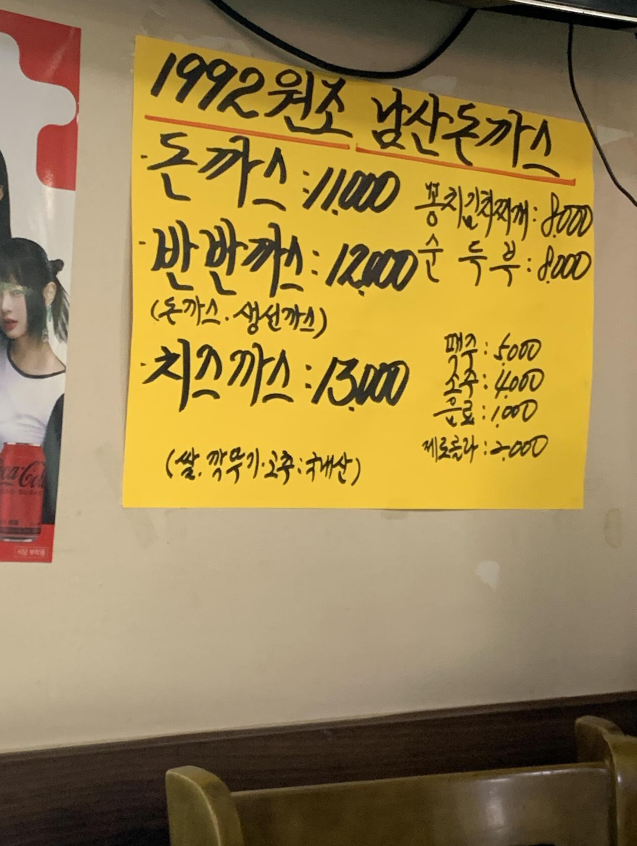 1992원조 남산돈까스
·돈까스:11,000
·반반까스:12,000
(돈까스·생선까스)
·치즈까스:13,000
(쌀.깍뚜기·고추:국내산)
꽁치김치찌개:8,000
순두부:8,000
맥주:5,000
소주:4,000
음료:1,000
제로콜라:2,000
Coca-Cola